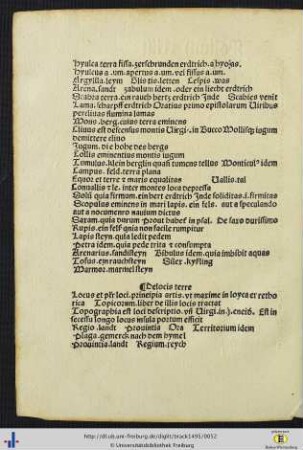 Hyulca terra fissa. zerschrunden erdtrich. a hyojas.
Hyulcus a .um. apertus a .um. vel fissus a .um.
Argyilla. leym Glis tis. letten Lespis .was
Arena. sandt zabulum idem .oder ein liecht erdtrich
Scabra terra. ein rauch hertz erdtrich Inde Scabies venit
Lama. scharpff erdtrich Oratius primo epistolarum Viribus
perelitas flumina lamas
Mons .berg. cuius terra eminens
Cliuus est descensus montis Virgi. in Bucco Mollisq iugum
demittere cliuo
Jugum. die hohe des bergs
Collis eminentius montis iugum
Tumulus. klein berglin quasi tumens tellus Monticulus idem
Campus. feld. terra plana
Equor et terre et maris equalitas Vallis .tal
Conuallis est le. inter montes locus depressa
Solum quia firmum. ein hert erdtrich Inde soliditas .i. firmitas
Scopulus eminens in mari lapis. ein fels. aut a speculando
aut a nocumento nautum dictus
Saxum. quia durum Prout habet in psal. De saxo durissimo
Rupis. ein fels quia non facile rumpitur
Lapis steyn. quia ledit pedem
Petra idem. quia pede trita et consumpta
Arenarius. sandisteyn Bibulus idem. quia imbibit aquas
Tofus. ey rauchsteyn Silex .kysling
Marmor. marmelsteyn
De locis terre
Locus est pars loci. principia artis. ut maxime in loyca et retho
rica Topicorum liber de illis locis tractat
Topographia est loci descriptio. vn Virgi. in .j. eneid. Est in
secessu longo locus insula portum efficit
Regio .landt Prouintia Ora Territorium idem
Plaga. gemerck nach dem hymel
Prouintia. landt Regnum. reych
http://dl.ub.uni-freiburg.de/diglit/brack1495/0052
© Universitätsbibliothek Freiburg